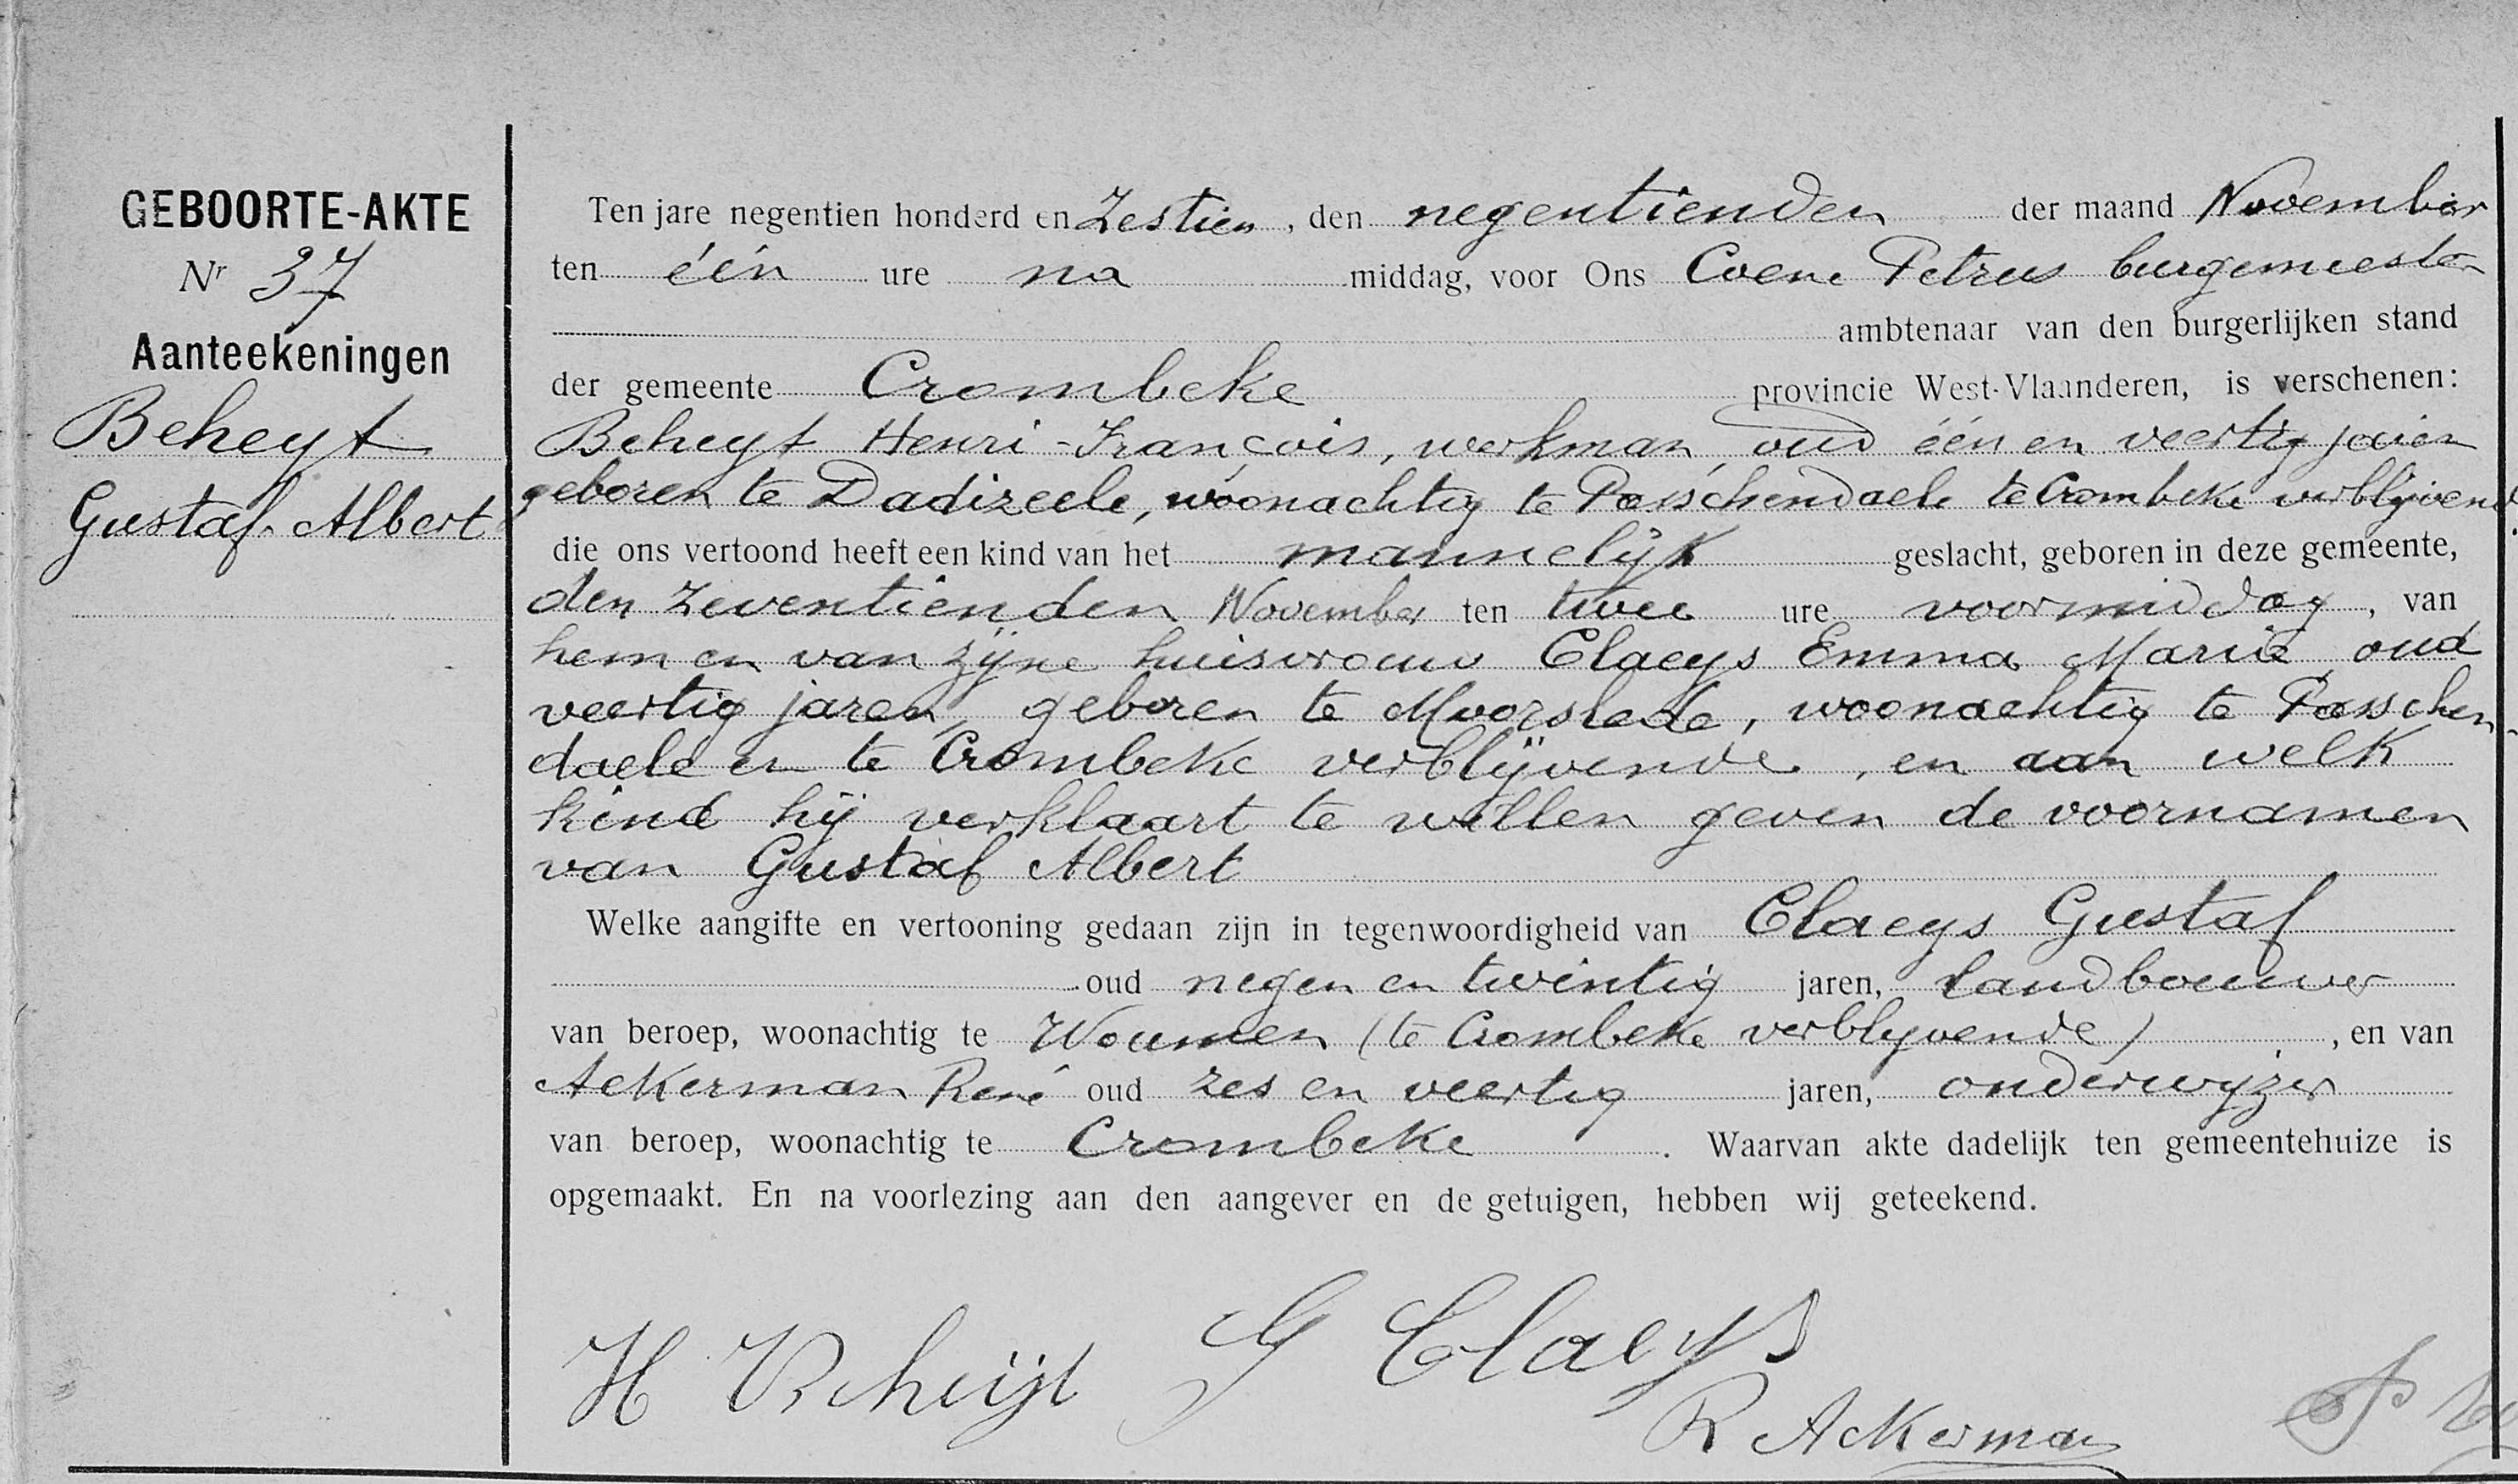 GEBOORTE-AKTE
Nr 37
Aanteekeningen
Beheyt
Gustaf Albert
Ten jare negentien honderd en Zestien, den negentienden der maand November
ten één ure na middag, voor Ons Coene Petrus burgemeester
ambtenaar van den burgerlijken stand
der gemeente Crombeke provincie West-Vlaanderen, is verschenen:
Beheyt Henri-François, werkman, oud één en veertig jaren
geboren te Dadizeele, woonachtig te Passchendaele te Crombeke verblijvend
die ons vertoond heeft een kind van het mannelijk geslacht, geboren in deze gemeente,
den zeventienden November ten twee ure voormiddag, van
hem en van zijne huisvrouw Claeys Emma Marie oud
veertig jaren, geboren te Moorslede, woonachtig te Passchen-
daele en te Crombeke verblijvende, en aan welk
kind hij verklaart te willen geven de voornamen
van Gustaf Albert
Welke aangifte en vertooning gedaan zijn in tegenwoordigheid van Claeys Gustaf
oud negen en twintig jaren, landbouwer
van beroep, woonachtig te Woumen (te Crombeke verblyvende), en van
Ackerman René oud zes en veertig jaren, onderwyzer
van beroep, woonachtig te Crombeke. Waarvan akte dadelijk ten gemeentehuize is
opgemaakt. En na voorlezing aan den aangever en de getuigen, hebben wij geteekend.
H Beheijt G Claeys
R Ackerman